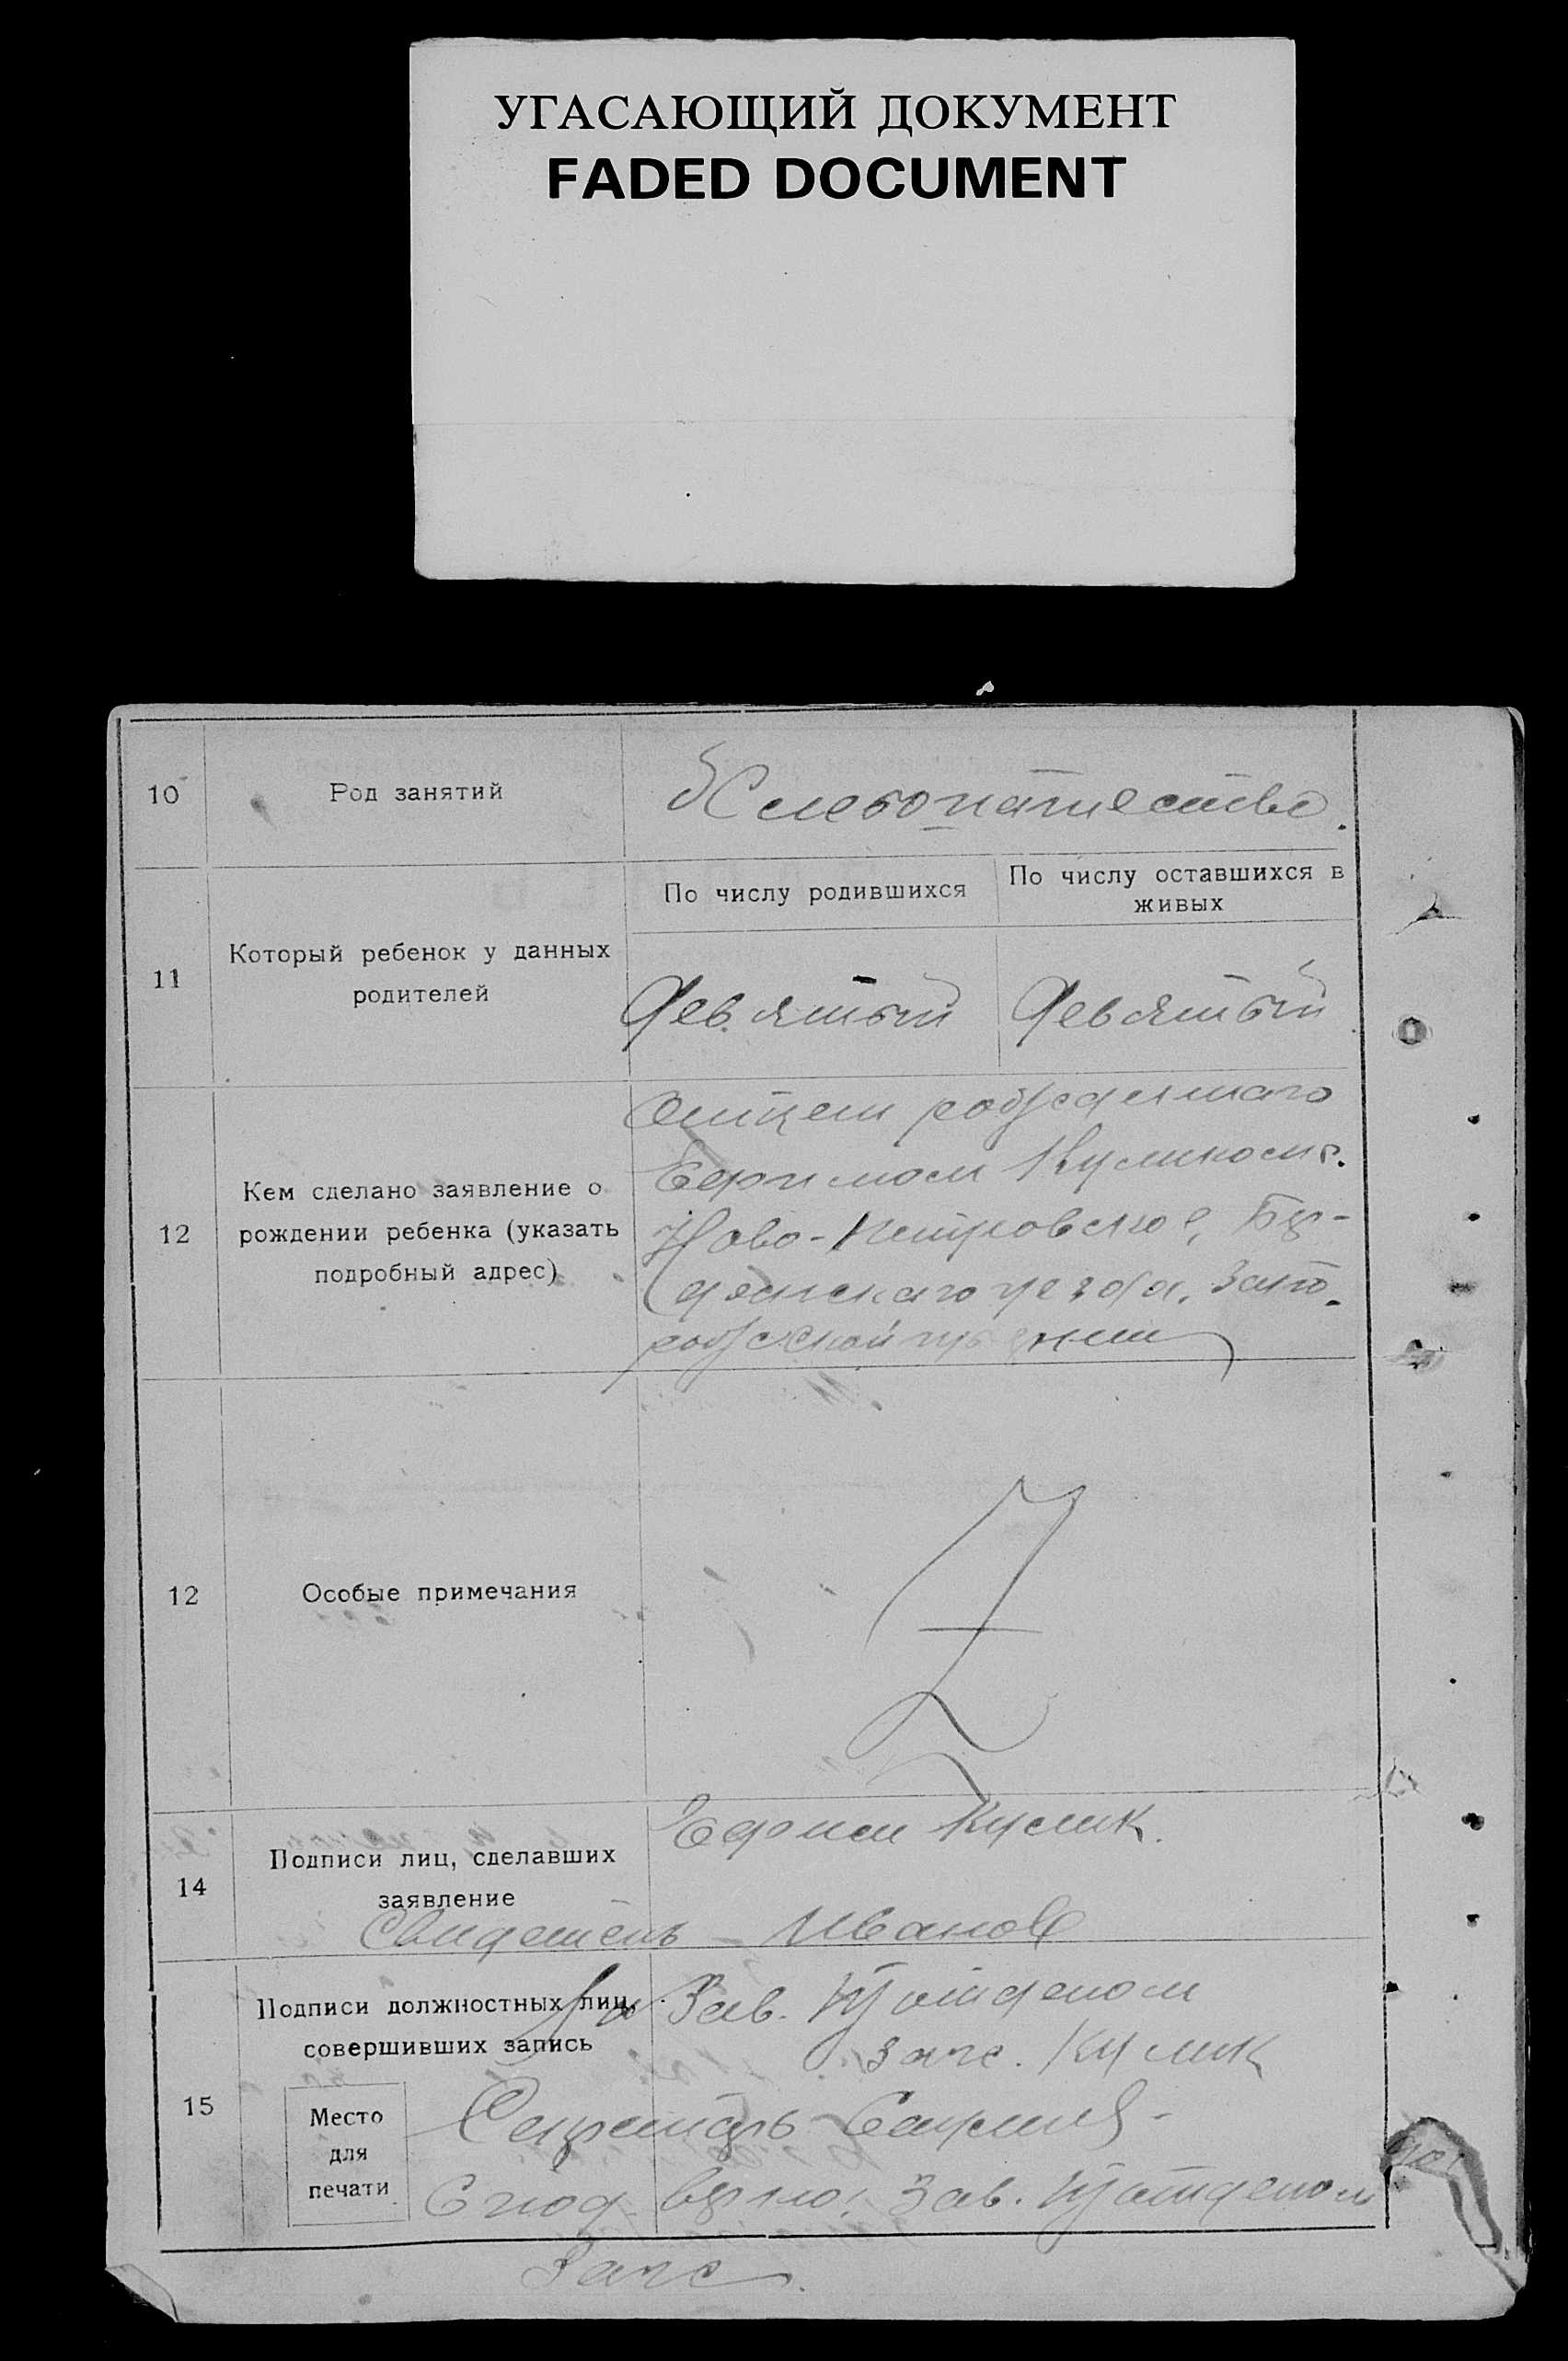 УГАСАЮЩИЙ ДОКУМЕНТ
FADED DOCUMENT
10
Род занятий
Хлебопашество.
11
Который ребенок у данных
родителей
По числу родившихся
По числу оставшихся в
живых
Девятый
Девятый
12
Кем сделано заявление о
рождении ребенка (указать
подробный адрес)
Отцем рожденнаго
Ефимом Куликом с.
Ново-Петровское, Бер-
дянскаго уезда, Запо-
рожской
12
Особые примечания
14
Подписи лиц, сделавших
заявление
Ефим Кулик.
Свидетель - Иванов
15
Подписи должностных лиц,
совершивших запись
Зав. П/отделом
загс. Кулик
Место
для
печати
Секретарь
С под. верно: Зав. П/отделом
Загс